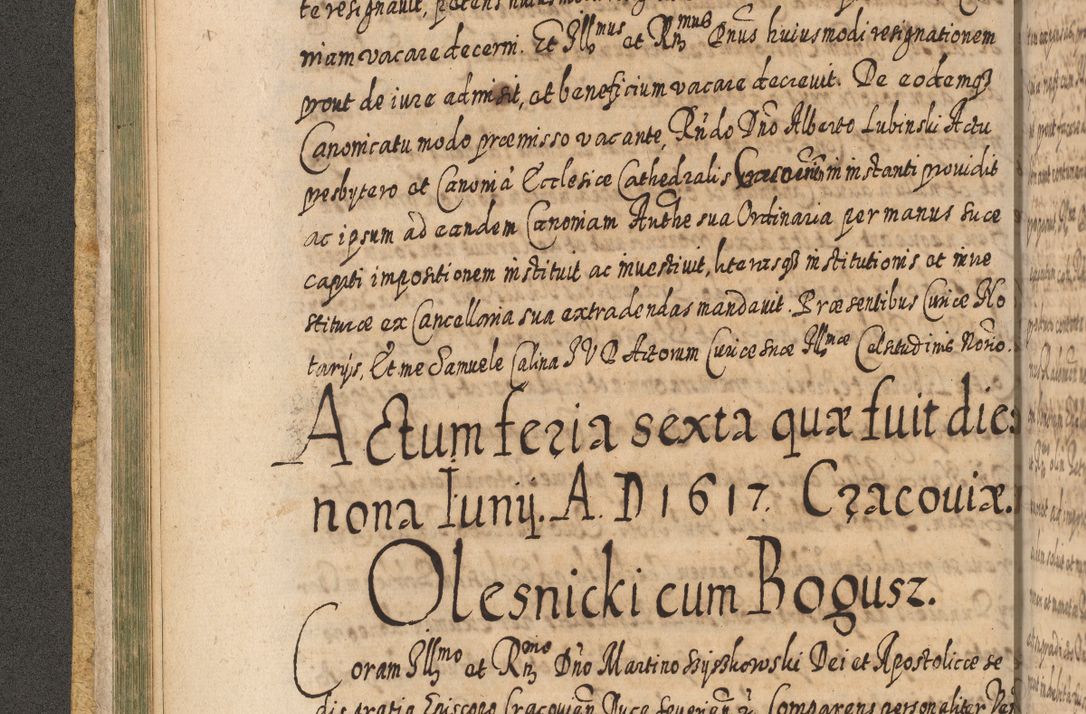 te resignavit, petens huiusmodi
niam vacare decerni. Et Illmus et Rmus Dnus huiusmodi resignationem
prout de iure admisit, et beneficium vacare decrevit. De eodemq3
Canonicatu modo præmisso vacante, Rndo Dno Alberto Lubinski Actu
presbytero et Canonia Ecclesiæ Cathedralis Cracovien in instanti providit
ac ipsum ad eandem Canoniam Authe sua Ordinaria per manus suæ
capiti impositionem instituit ac investivit, literasq3 institutionis et inve
stituræ ex Cancellaria sua extradendas mandavit. Præsentibus Curiæ No
tarijs, Et me Samuele Calina IVD Actorum Curiæ suæ Illmæ Celsitudinis Norio.
Actum feria sexta quæ fuit dies
nona Iunij. A. D 1617. Cracoviæ.
Olesnicki cum Bogusz.
Coram Illmo et Rmo Dno Martino Szyszkowski Dei et Apostolicæ se
dis gratia Episcopo Cracovien Duce Severien Comparens personaliter